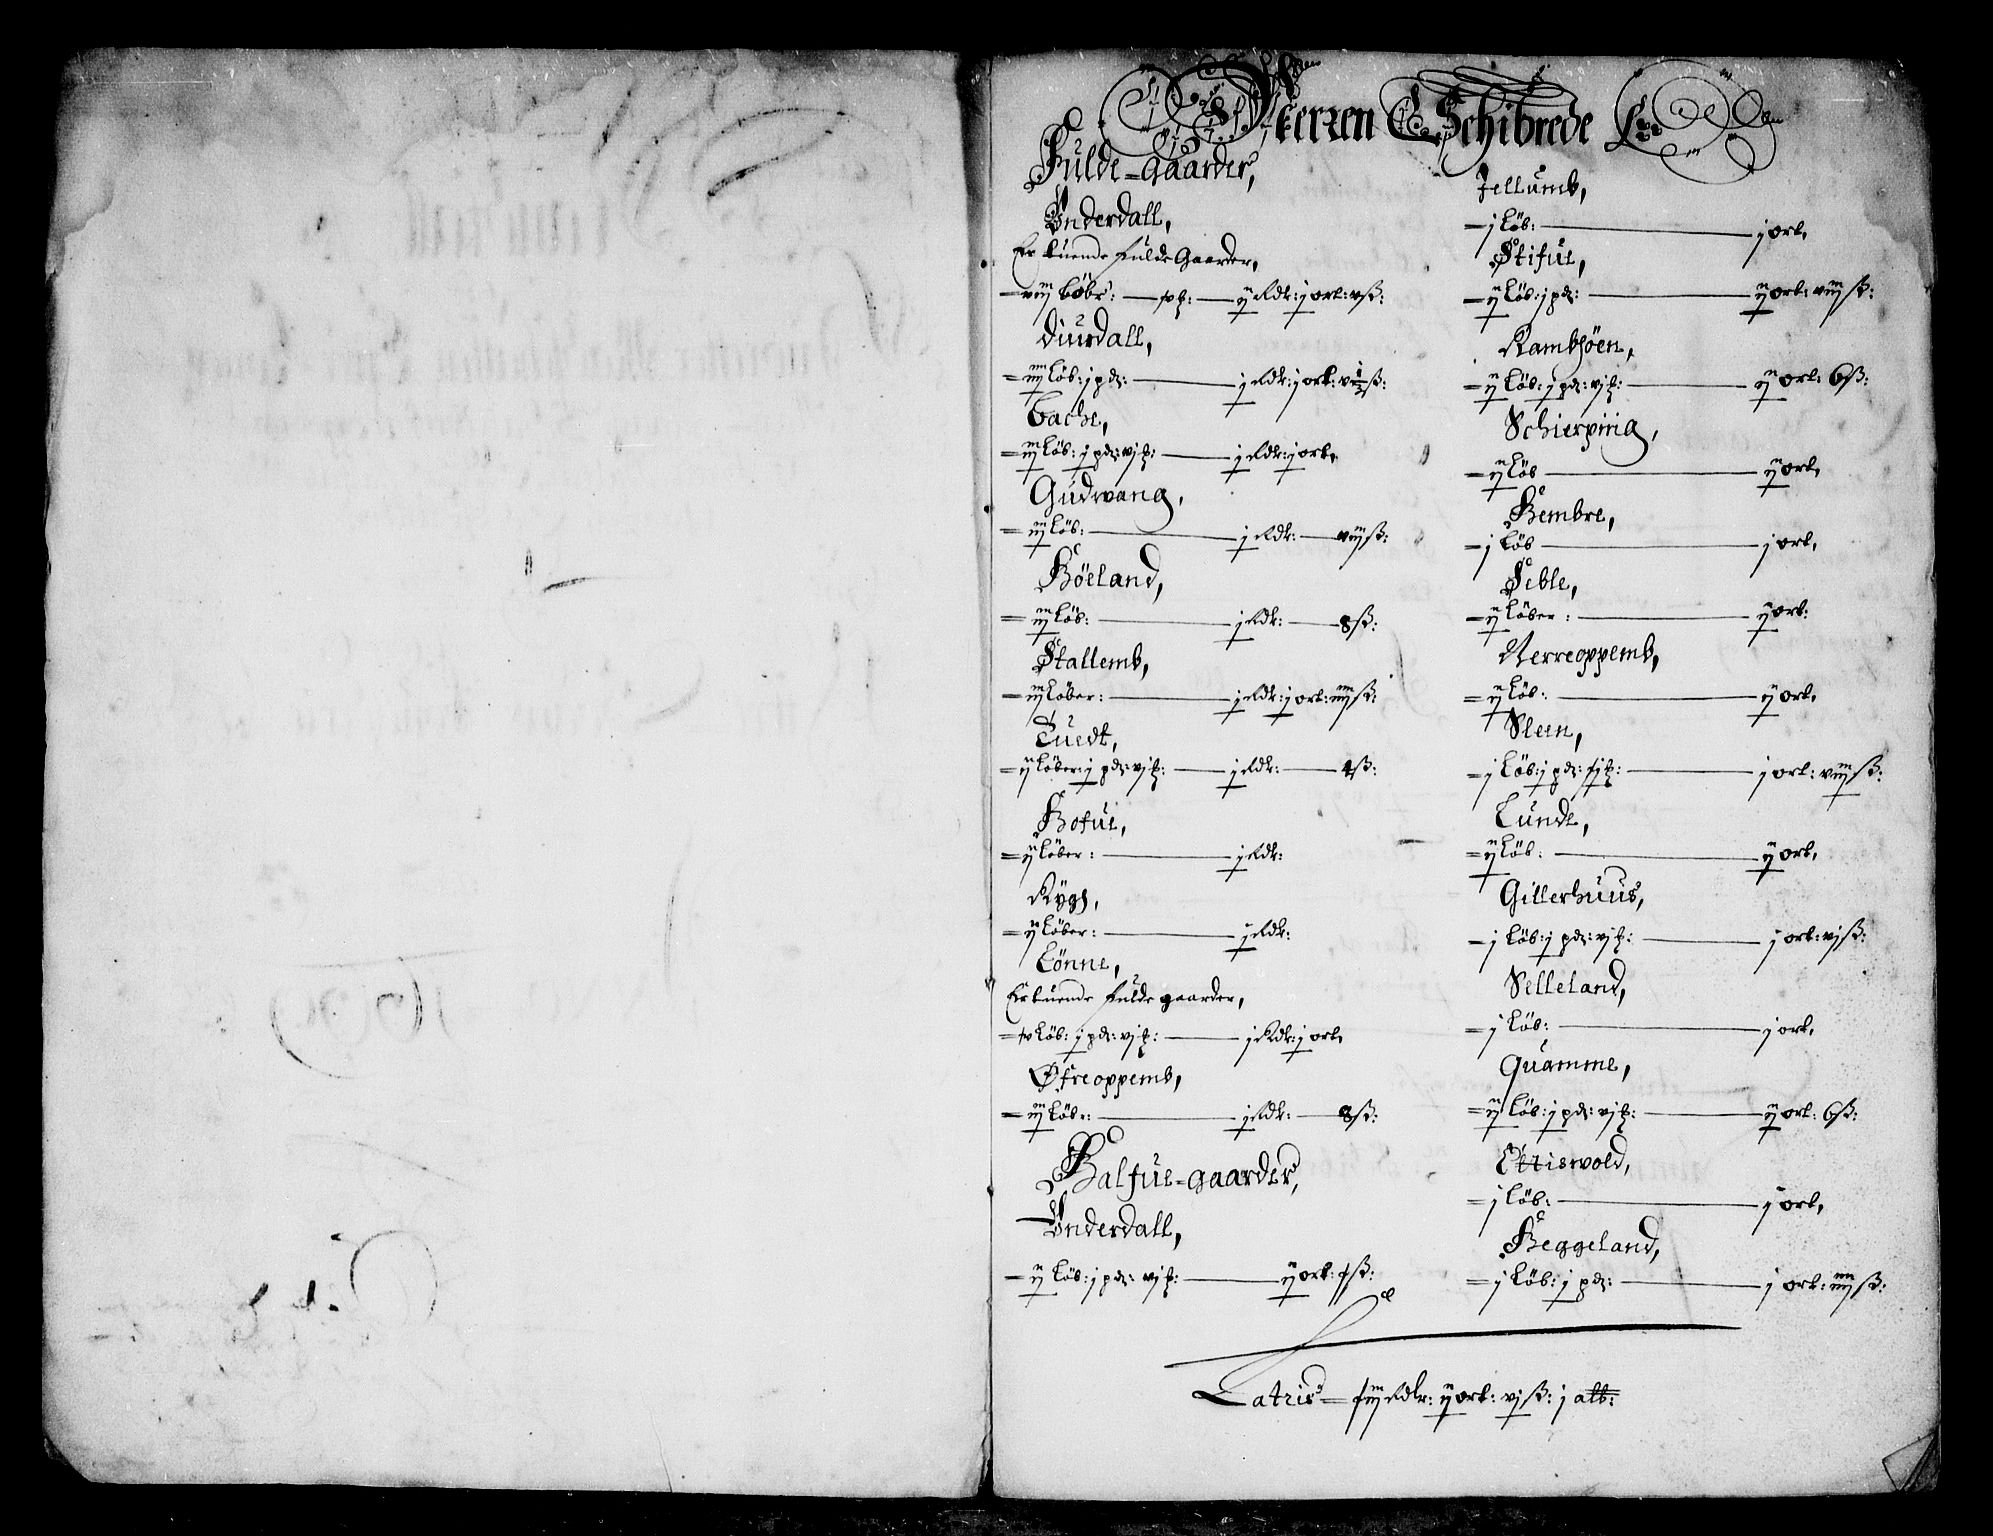 Kerren Schibrede
Fulde-gaarder,
Underdall,
Er tuende Fulde Gaarder,
viij Löbr: j Rdr: j ort:
Diurdall,
iiij löb: j pd: j Rdr: j ort:
Bache,
iij löb: j pd: vj j Rdr: j ort,
Gudwang,
iij löb: j Rdr: viij ß:
Höeland,
iij löb: j Rdr: 8 ß:
Stallemb,
iij löber: j Rdr: j ort: iiij ß:
Tuedt,
ij löber: j pd: vj j Rdr: 4 ß:
Hofue,
ij löber: j Rdr:
Rygh,
ij löber: j Rdr:
Lönne,
Er tuende Fulde gaarder,
löb: j pd: vj j Rdr: j ort,
Øfreoppemb,
iij löbr: j Rdr: 8 ß:
Halfue-gaarder,
Underdall,
ij löb: j pd: vj ij ort:
Jellumb,
j löb: j ort,
Stifue,
ij löb: j pd: ij ort: viij ß:
Rambsöen,
ij löb: j pd: vj ij ort: 6 ß:
Schierping,
ij löb ij ort,
Hembre,
j löb j ort,
Seble,
ij löber: ij ort:
Nerreoppemb,
ij löb: ij ort,
Sleen,
j löb: j pd: j ort: viij ß:
Lunde,
ij löb: ij ort,
Gillerhuus,
j löb: j pd: vj j ort: vj ß:
Selleland,
j löb: j ort,
Quamme,
ij löb: j pd: vj ij ort: 6 ß:
Ottiswold,
j löb: j ort,
Heggeland,
j löb: j pd: j ort: iiij ß:
Latris Rdlr: ij ort: vj ß: j alb: